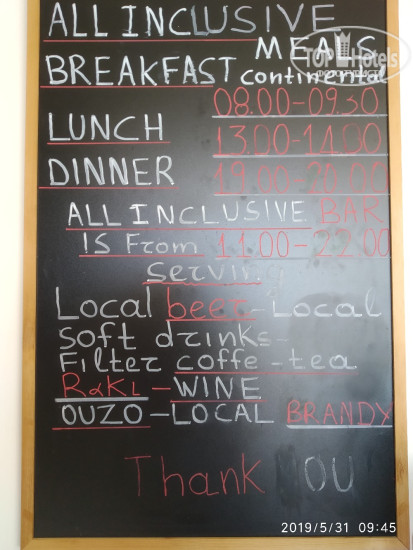 ALL INCLUSIVE
MEALS
BREAKFAST continental
08.00-09.30
LUNCH 13.00-14.00
DINNER 19.00-20.00
ALL INCLUSIVE BAR
IS From 11.00-22.00
Serving
Local beer-Local
Soft drinks-
Filter coffe-tea
RaKi-WINE
OUZO-LOCAL BRANDY
Thank OU
2019/5/31 09:45